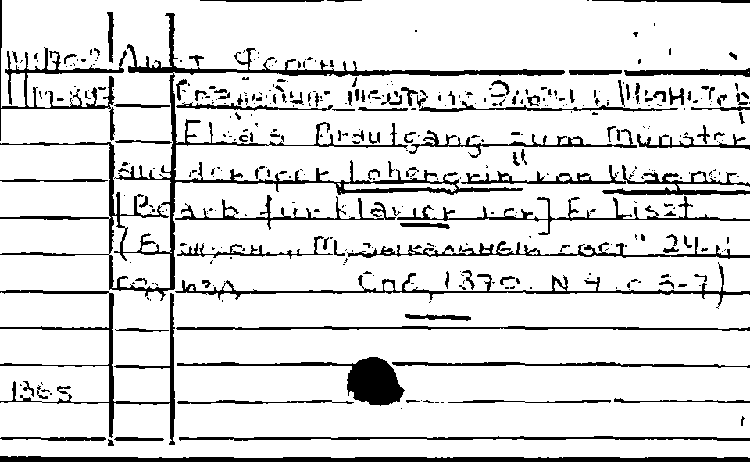 М1170-2 Лист Ференц
Свадебное шествие Эльзы в Мюнстер
Elsa's Brautgang zum Münster
aus der oper "Lohengrin" von Wagner
[Bearb. für Klavier von] Fr Liszt.
(В журн. "Музыкальный свет" 24-й
год изд Спб, 1870. N 4. с 3-7)
1365